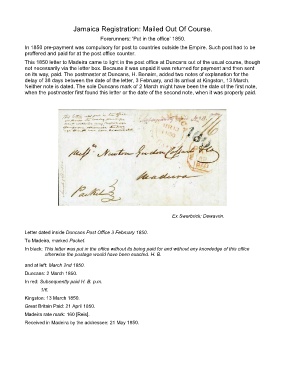 Jamaica Registration: Mailed Out Of Course.
Forerunners; 'Put in the office' 1850.
In 1850 pre-payment was compulsory for post to countries outside the Empire. Such post had to be
proffered and paid for at the post office counter.
This 1850 letter to Madeira came to light in the post office at Duncans out of the usual course, though
not necessarily via the letter box. Because it was unpaid it was returned for payment and then sent
on its way, paid. The postmaster at Duncans, H. Bensen, added two notes of explanation for the
delay of 38 days between the date of the letter, 3 February, and its arrival at Kingston, 13 March.
Neither note is dated. The sole Duncans mark of 2 March might have been the date of the first note,
when the postmaster first found this letter or the date of the second note, when it was properly paid.
Messrs Newton Gordon Cossart & Co
Madeira
Packet
Ex Swarbrick; Dewavrin.
Letter dated inside Duncans Post Office 3 February 1850.
To Madeira, marked Packet.
In black: This letter was put in the office without its being paid for and without any knowledge of this office
otherwise the postage would have been exacted. H. B.
and at left: March 2nd 1850
Duncans: 2 March 1850.
In red: Subsequently paid H. B. p.m.
1/6
Kingston: 13 March 1850.
Great Britain Paid: 21 April 1850.
Madeira rate mark: 160 [Reis].
Received in Madeira by the addressee: 21 May 1850.